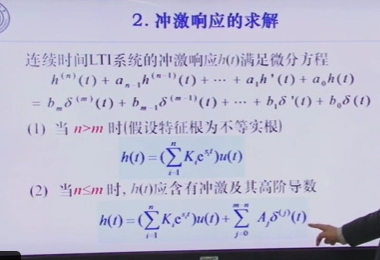 2. 冲激响应的求解
连续时间LTI系统的冲激响应h(t)满足微分方程
h⁽ⁿ⁾(t) + aₙ₋₁h⁽ⁿ⁻¹⁾(t) + ⋯ + a₁h'(t) + a₀h(t)
= bₘδ⁽ᵐ⁾(t) + bₘ₋₁δ⁽ᵐ⁻¹⁾(t) + ⋯ + b₁δ'(t) + b₀δ(t)
(1) 当 n>m 时(假设特征根为不等实根)
h(t) = (∑ᵢ₌₁ⁿ Kᵢe^{sᵢt})u(t)
(2) 当n≤m 时, h(t)应含有冲激及其高阶导数
h(t) = (∑ᵢ₌₁ⁿ Kᵢe^{sᵢt})u(t) + ∑ⱼ₌₀ᵐ⁻ⁿ Aⱼδ⁽ʲ⁾(t)